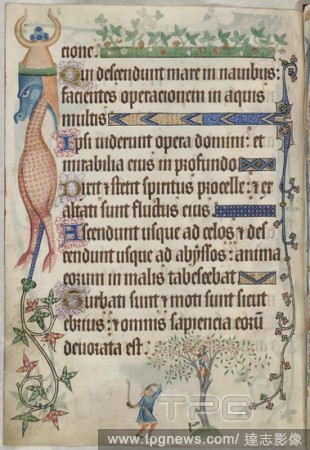 cione.
Qui descendunt mare in nauibus:
facientes operacionem in aquis
multis
Ipsi uiderunt opera domini: et
mirabilia eius in profundo
Dixit & stetit spiritus procelle: & ex
altati sunt fluctus eius
Ascendunt usque ad celos & des
cendunt usque ad abyssos: anima
eorum in malis tabescebat
Turbati sunt & moti sunt sicut
ebrius: & omnis sapiencia eorū
deuorata est.
TPG
www.tpgnews.com/ 達志影像